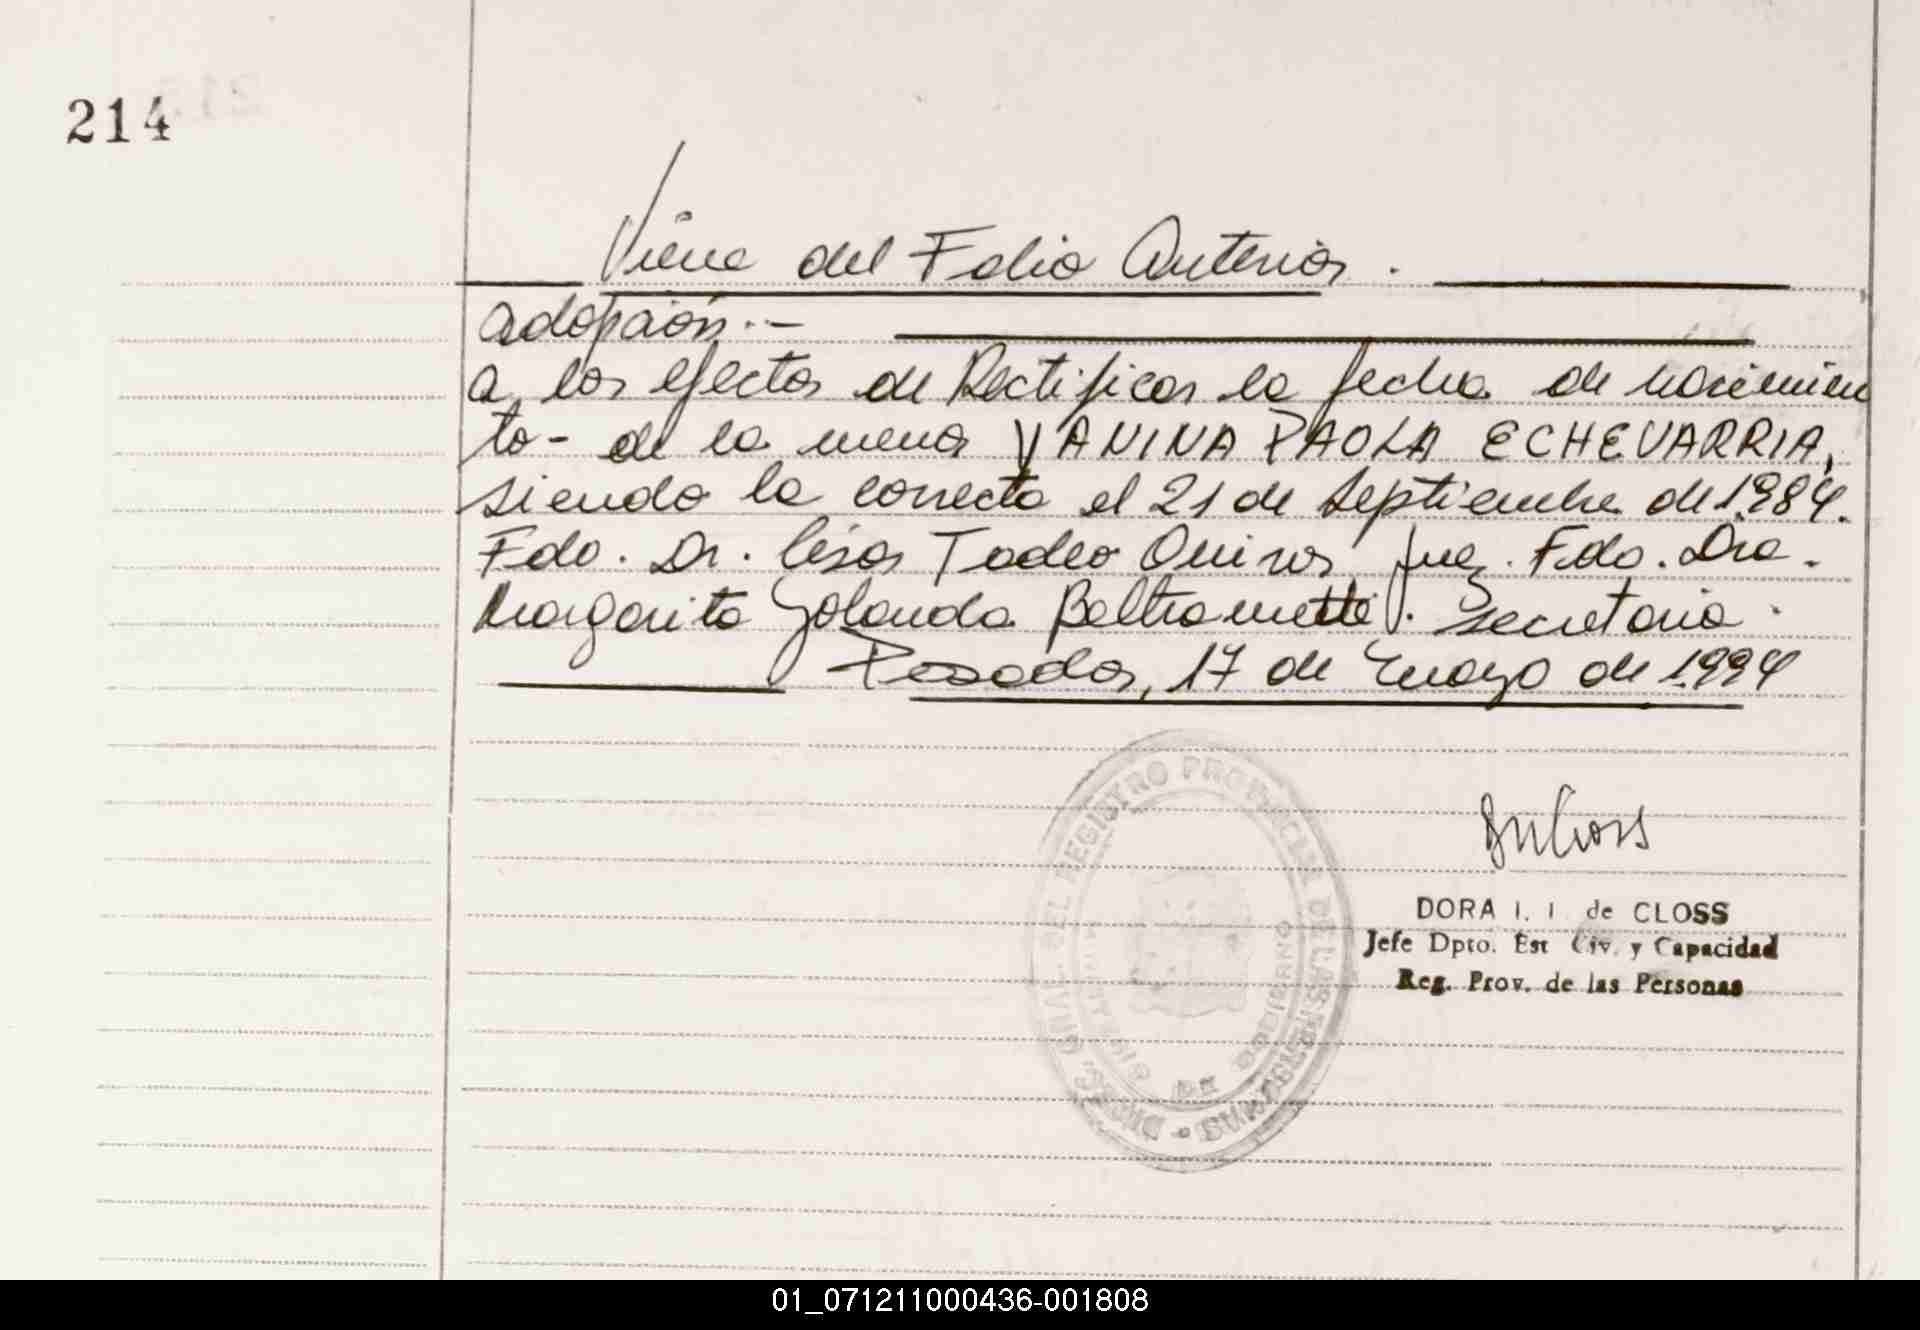 214
Viene del Folio Anterior.
adopción.-
a los efectos de Rectificar la fecha de nacimien
to - de la menor VANINA PAOLA ECHEVARRIA,
siendo la correcta el 21 de Septiembre de 1.984.
Fdo. Dr. César Tadeo Quiros Juez. Fdo. Dra.
Margarita Yolanda Beltrametti. Secretaria.
Posadas, 17 de Mayo de 1.994
DIR. GRAL. DEL REGISTRO PROVINCIAL DE LAS PERSONAS
DE GOBIERNO
DORA I. I de CLOSS
Jefe Dpto. Est Civ. y Capacidad
Reg. Prov. de las Personas
01_071211000436-001808